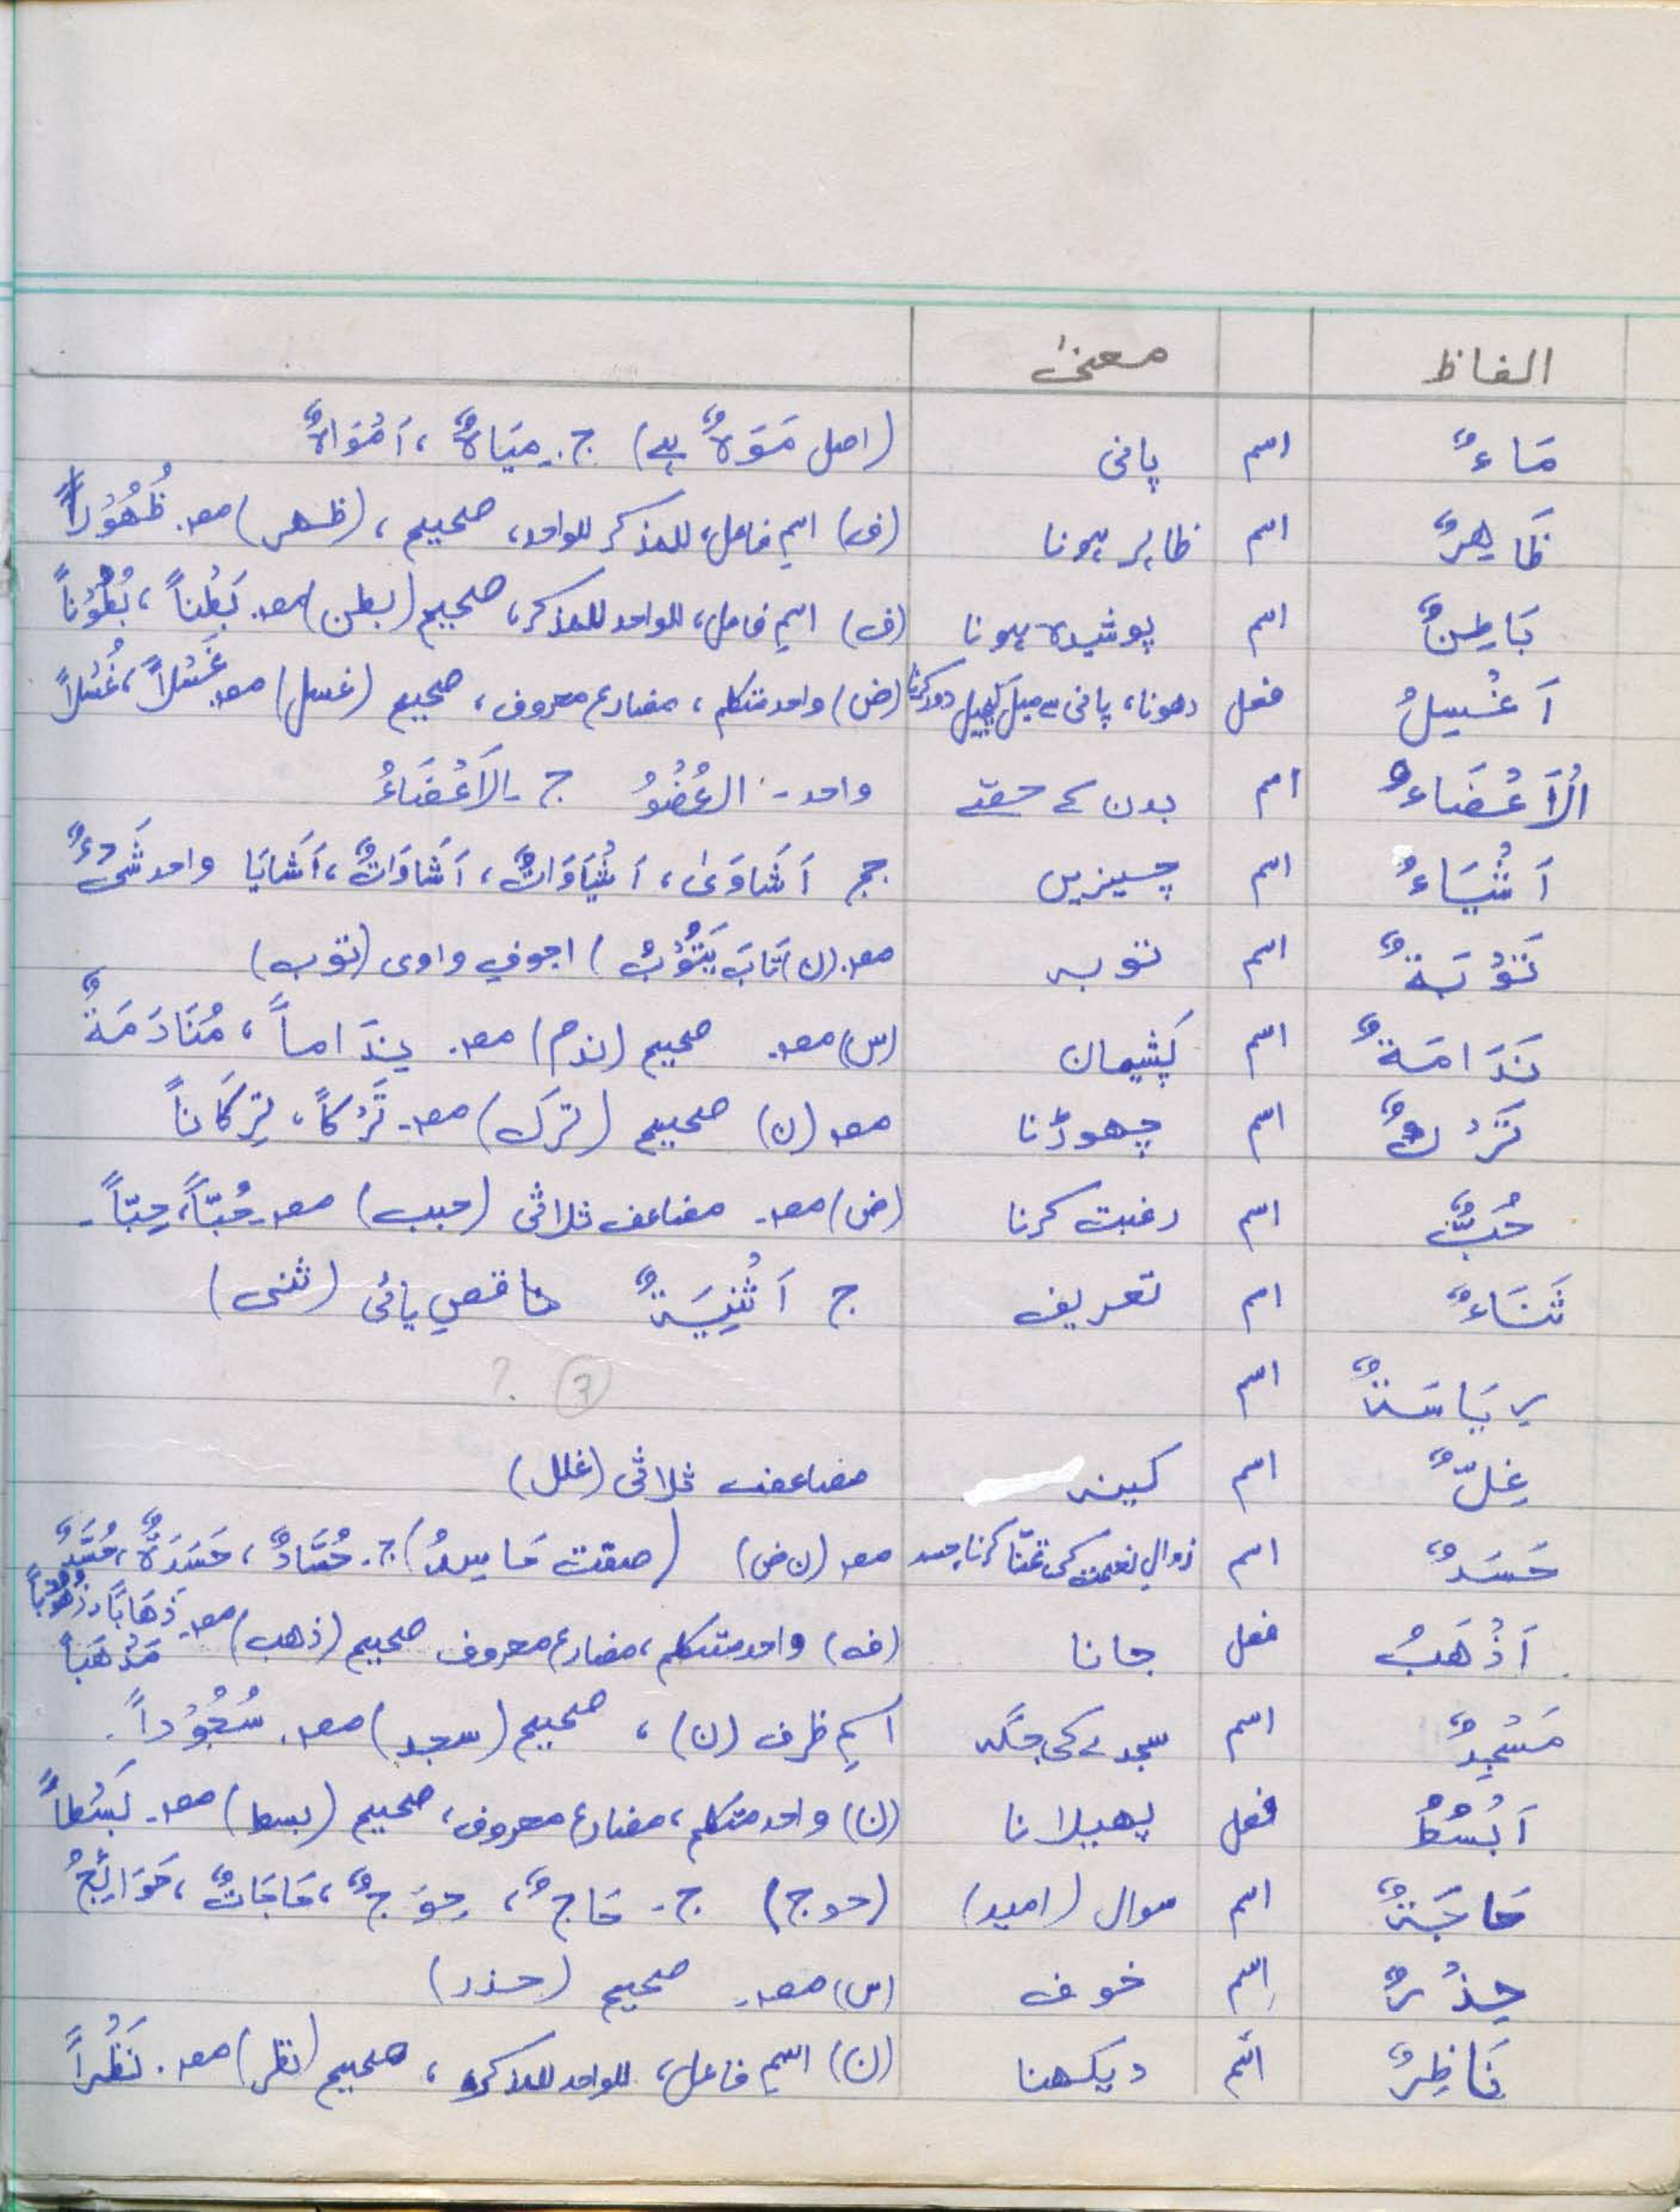 الفاظ معنیٰ
مَاءٌ اسم پانی (اصل مَوَہٌ ہے) ج۔ مِیَاہٌ ، اَمْوَاہٌ
ظَاهِرٌ اسم ظاہر ہونا (ف) اسمِ فاعل، للمذکر للواحد، صحیح ، (ظھر) مصـ۔ ظُهُوْراً
بَاطِنٌ اسم پوشیدہ ہونا (ف) اسمِ فاعل، للواحد للمذکر، صحیح (بطن) مصـ۔ بَطْناً ، بُطُوْناً
اَغْسِلُ فعل دھونا، پانی سے میل کچیل دور کرنا (ض) واحد متکلم ، مضارع معروف، صحیح (غسل) مصـ۔ غَسْلاً ، غُسْلاً
الْاَعْضَاءُ اسم بدن کے حصّے واحد ۔ العُضْوُ ج ۔ الاَعْضَاءُ
اَشْیَاءُ اسم چیزیں جج اَشَاوَیٰ ، اَشْیَاوَاتٌ ، اَشَاوَاتٌ ، اَشَایَا واحد شَیْءٌ
تَوْبَةٌ اسم توبہ مصـ۔ (ن) تَابَ یَتُوْبُ ) اجوفِ واوی (توب)
نَدَامَةٌ اسم پشیمان (س) مصـ۔ صحیح (ندم) مصـ۔ نِدَاماً ، مُنَادَمَةٌ
تَرْكٌ اسم چھوڑنا مصـ (ن) صحیح (ترک) مصـ۔ تَرْکاً ، تِرْکَاناً
حُبٌّ اسم رغبت کرنا (ض) مصـ۔ مضاعف ثلاثی (حبب) مصـ۔ حُبّاً ، حِبّاً ۔
ثَنَاءٌ اسم تعریف ج اَثْنِیَةٌ ناقصِ یائی (ثنی)
رِیَاسَةٌ اسم ③ ؟
غِلٌّ اسم کینہ مضاعف ثلاثی (غلل)
حَسَدٌ اسم زوالِ نعمت کی تمنّا کرنا، حسد مصـ (ن ض) (صفت حَاسِدُ) ج۔ حُسَّادٌ ، حَسَدَةٌ ، حُسَّدٌ
اَذْهَبُ فعل جانا (ف) واحد متکلم ، مضارع معروف صحیح (ذھب) مصـ۔ ذَهَاباً ، ذُهُوْباً مَذْهَباً
مَسْجِدٌ اسم سجدے کی جگہ اسمِ ظرف (ن) ، صحیح (سجد) مصـ۔ سُجُوْداً ۔
اَبْسُطُ فعل پھیلانا (ن) واحد متکلم ، مضارع معروف ، صحیح (بسط) مصـ۔ بَسْطاً
حَاجَةٌ اسم سوال (امید) (حوج) ج۔ حَاجٌ ، حِوَجٌ ، حَاجَاتٌ ، حَوَائِجُ
حِذْرٌ اسم خوف (س) مصـ۔ صحیح (حذر)
نَاظِرٌ اسم دیکھنا (ن) اسمِ فاعل، للواحد للمذکر ، صحیح (نظر) مصـ۔ نَظْراً